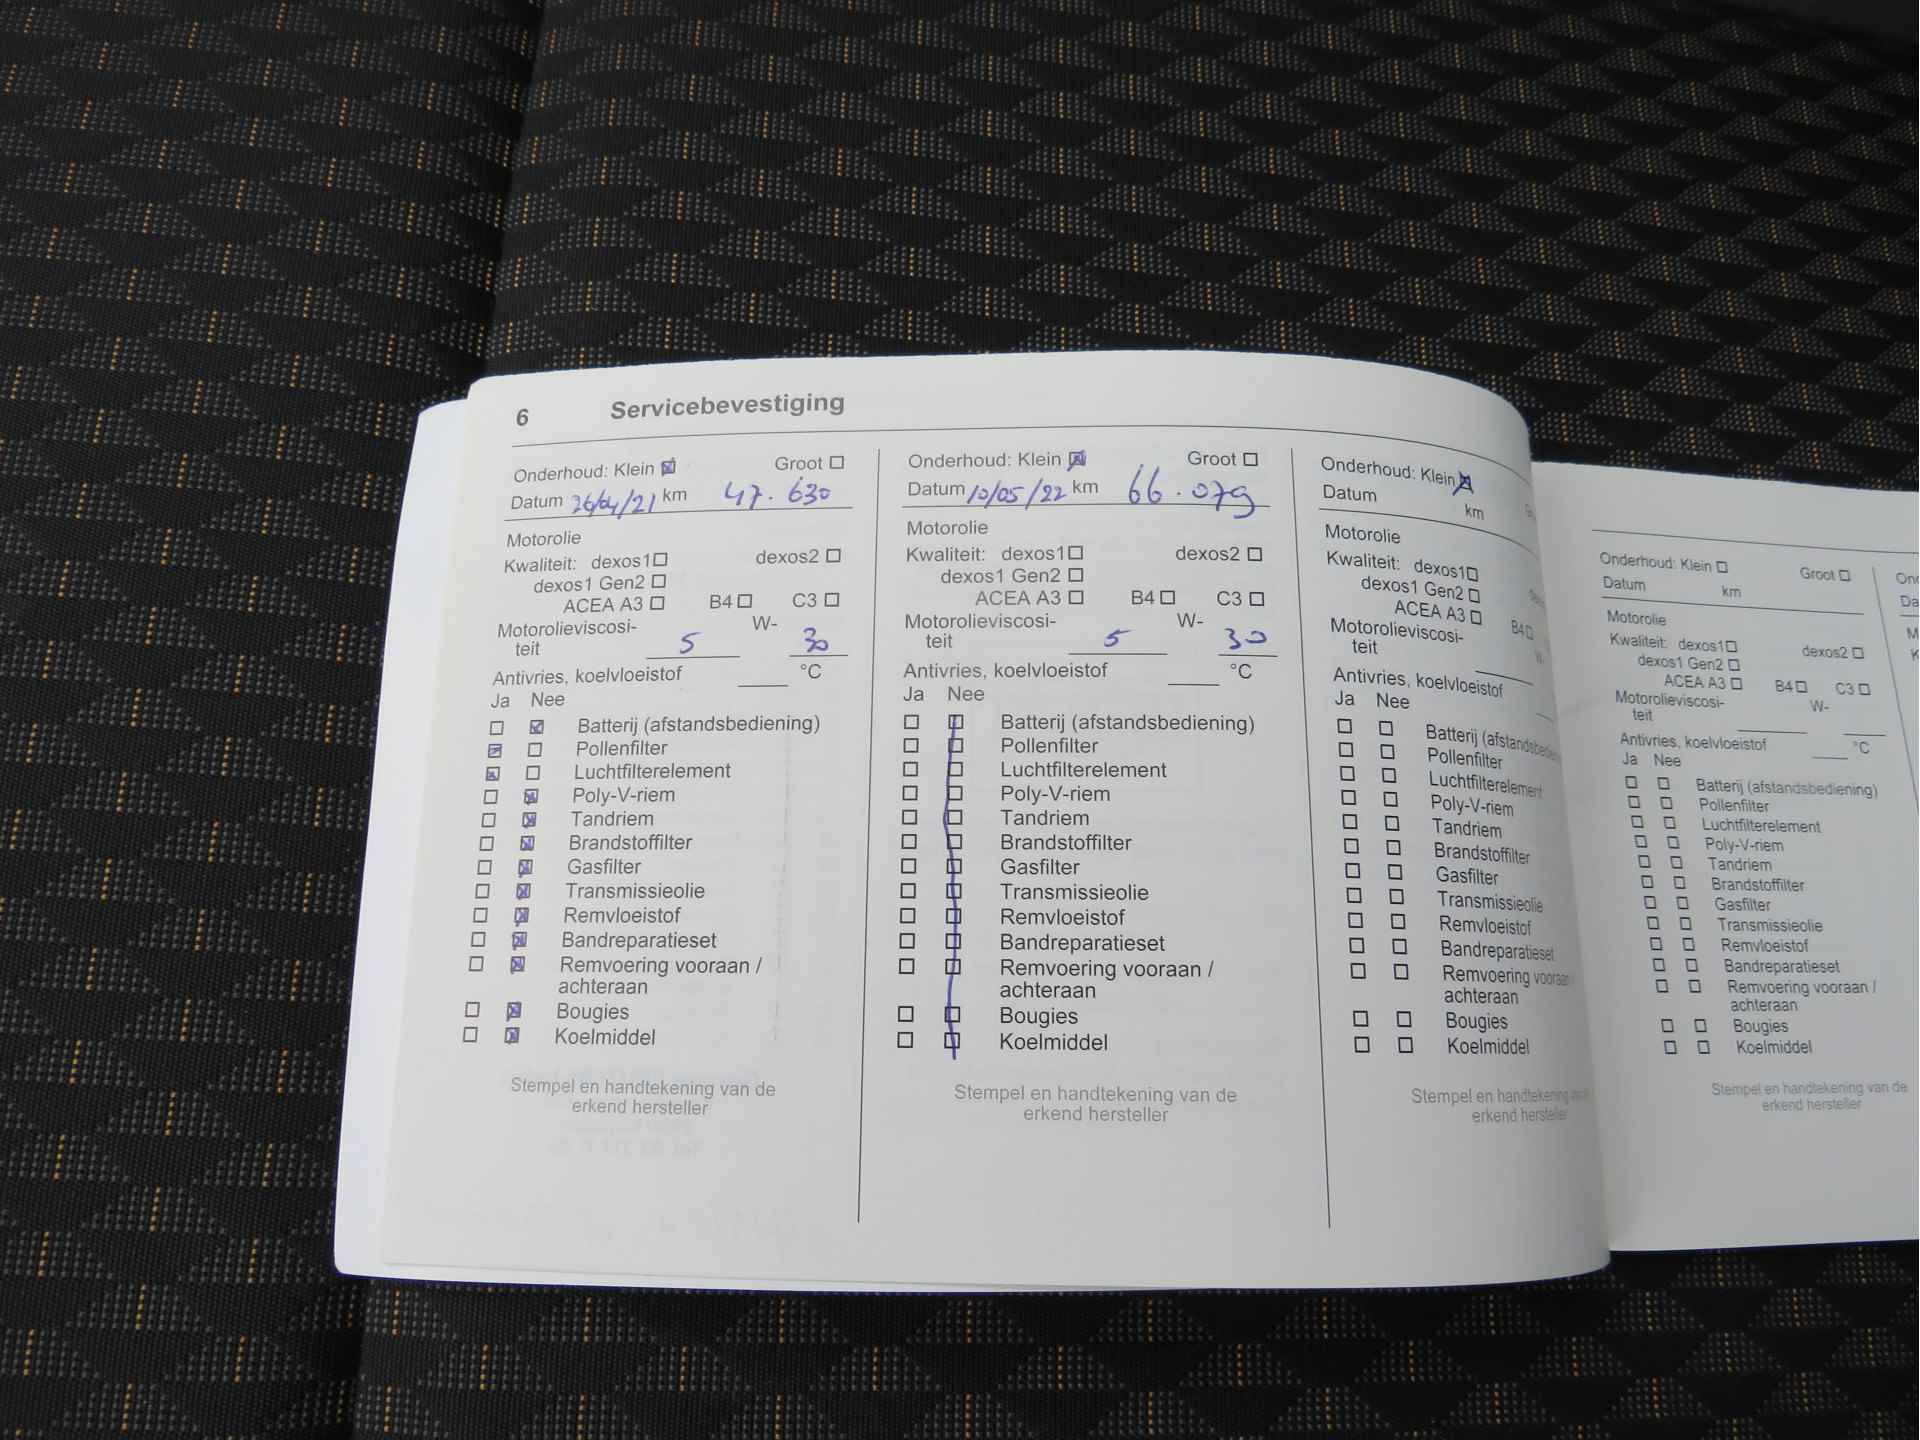 6 Servicebevestiging
Onderhoud: Klein Groot
Datum 26/04/21 km 47.630
Motorolie
Kwaliteit: dexos1 dexos2
dexos1 Gen2
ACEA A3 B4 C3
Motorolieviscosi- W-
teit 5 30
Antivries, koelvloeistof °C
Ja Nee
Batterij (afstandsbediening)
Pollenfilter
Luchtfilterelement
Poly-V-riem
Tandriem
Brandstoffilter
Gasfilter
Transmissieolie
Remvloeistof
Bandreparatieset
Remvoering vooraan /
achteraan
Bougies
Koelmiddel
Stempel en handtekening van de
erkend hersteller
Onderhoud: Klein Groot
Datum 10/05/22 km 66.079
Motorolie
Kwaliteit: dexos1 dexos2
dexos1 Gen2
ACEA A3 B4 C3
Motorolieviscosi- W-
teit 5 30
Antivries, koelvloeistof °C
Ja Nee
Batterij (afstandsbediening)
Pollenfilter
Luchtfilterelement
Poly-V-riem
Tandriem
Brandstoffilter
Gasfilter
Transmissieolie
Remvloeistof
Bandreparatieset
Remvoering vooraan /
achteraan
Bougies
Koelmiddel
Stempel en handtekening van de
erkend hersteller
Onderhoud: Klein
Datum
km
Motorolie
Kwaliteit: dexos1
dexos1 Gen2
ACEA A3 B4
Motorolieviscosi-
teit
Antivries, koelvloeistof
Ja Nee
Batterij
Pollenfilter
Luchtfilterelement
Poly-V-riem
Tandriem
Brandstoffilter
Gasfilter
Transmissieolie
Remvloeistof
Bandreparatieset
Remvoering vooraan
achteraan
Bougies
Koelmiddel
Stempel en handtekening
erkend hersteller
Onderhoud: Klein Groot
Datum km
Motorolie
Kwaliteit: dexos1 dexos2
dexos1 Gen2
ACEA A3 B4 C3
Motorolieviscosi- W-
teit
Antivries, koelvloeistof °C
Ja Nee
Batterij (afstandsbediening)
Pollenfilter
Luchtfilterelement
Poly-V-riem
Tandriem
Brandstoffilter
Gasfilter
Transmissieolie
Remvloeistof
Bandreparatieset
Remvoering vooraan /
achteraan
Bougies
Koelmiddel
Stempel en handtekening van de
erkend hersteller